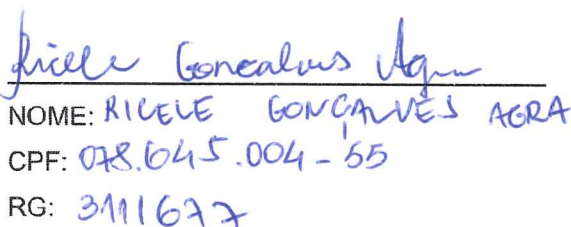 Ricele Goncalves Agra
NOME: RICELE GONÇALVES AGRA
CPF: 078.645.004-55
RG: 3111677